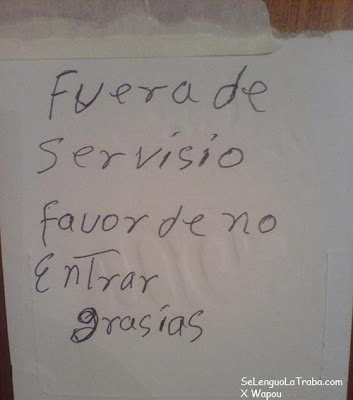 Fuera de
Servisio
favor de no
EnTrar
grasias
SeLenguoLaTraba.com
X Wapou